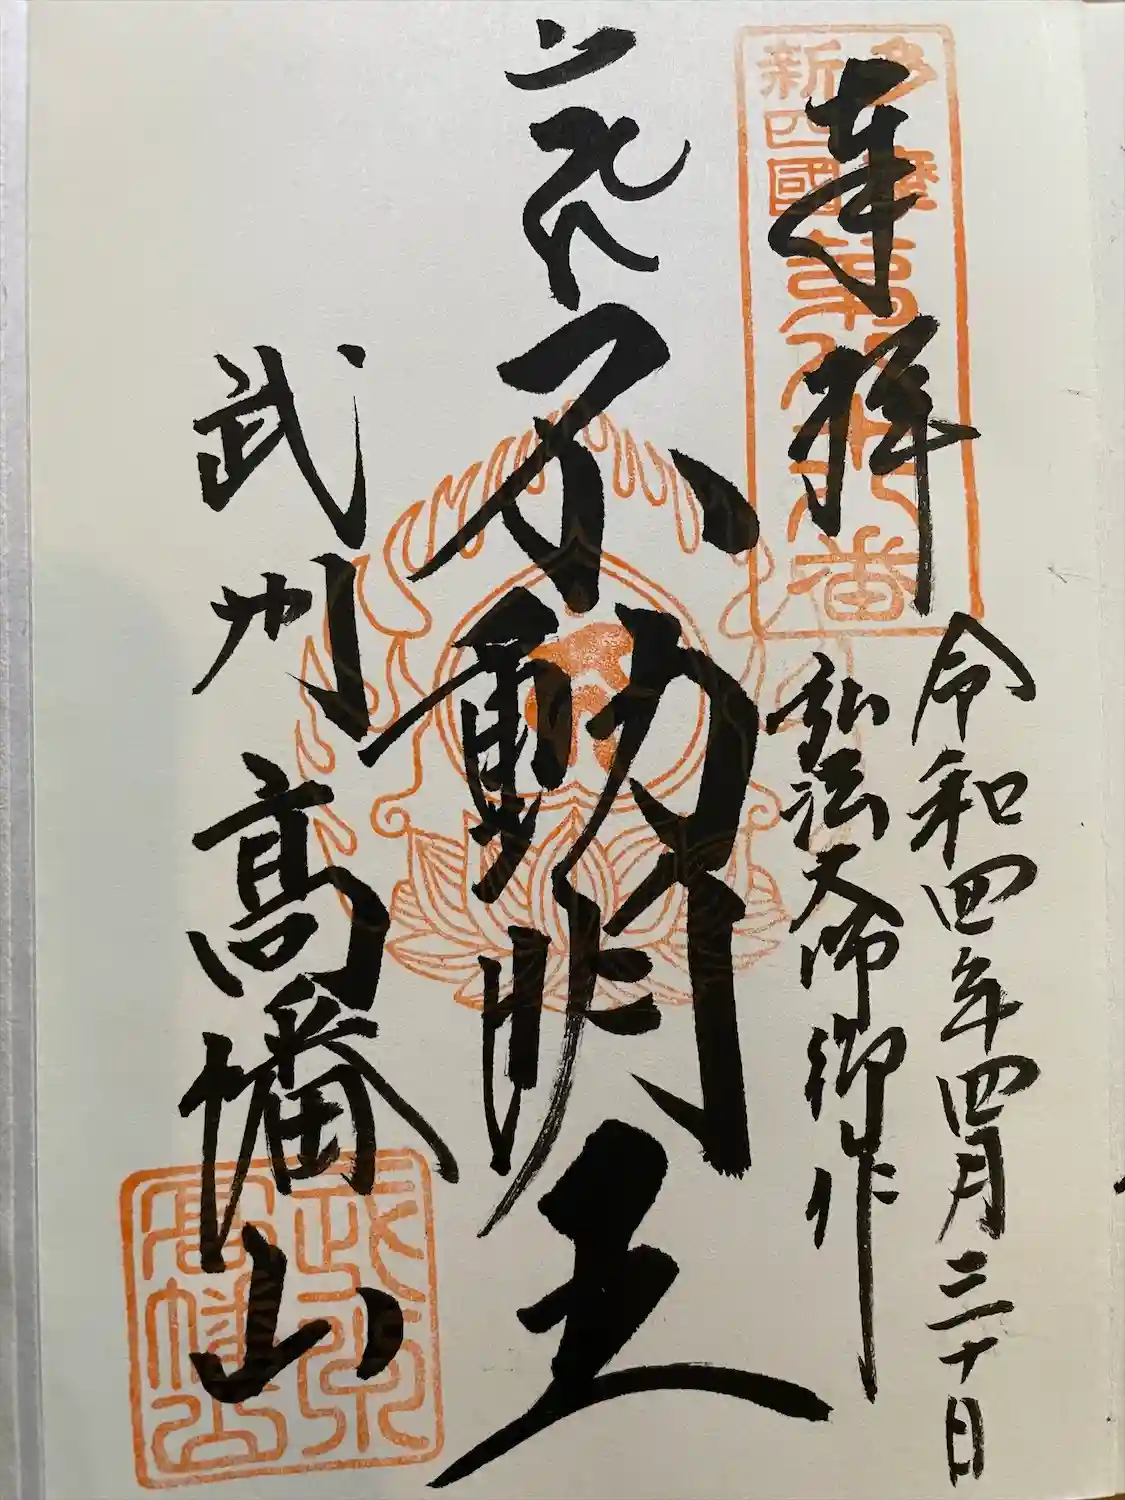 多摩
新四國
第八十八番
奉拝
令和四年四月三十日
弘法大師御作
不動明王
武州高幡山
武州
高幡山